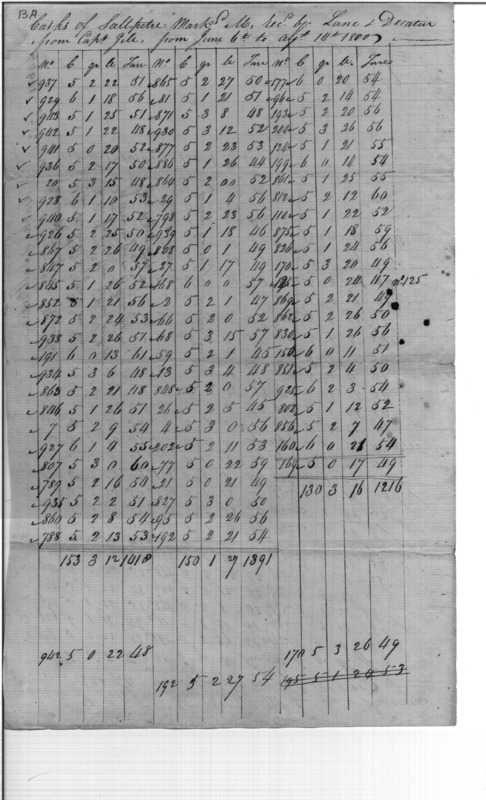 BA
Casks of Saltpetre Mark.d M, rec.d by Lane & Decatur
from Capt Gele, from June 6th to Augt 14th 1800
No C qr lb Tare No C qr lb Tare No C qr lb Tare
937 5 2 22 51 865 5 2 27 50 177 6 0 20 54
929 6 1 18 56 81 5 1 21 51 196 5 2 14 54
943 5 1 25 51 871 5 3 8 48 193 5 2 20 56
942 5 1 22 48 930 5 3 12 52 200 5 3 26 56
941 5 0 20 52 877 5 2 23 53 126 5 1 21 55
936 5 2 17 50 886 5 1 26 44 199 6 0 14 54
20 5 3 15 48 864 5 2 00 52 861 5 1 25 55
928 6 1 10 53 29 5 1 4 56 812 5 2 12 60
940 5 1 17 52 798 5 2 23 56 110 5 1 22 52
926 5 2 25 50 939 5 1 18 46 875 5 1 18 59
867 5 2 26 49 868 5 0 1 49 826 5 1 24 56
847 5 2 0 57 27 5 1 17 49 170 5 3 20 49
845 5 1 26 52 168 6 0 0 57 125 5 0 24 47 No 125
852 5 1 21 56 2 5 2 1 47 869 5 2 21 49
872 5 2 24 53 66 5 2 0 52 862 5 2 26 50
938 5 2 26 51 68 5 3 15 57 830 5 1 26 56
191 6 0 13 61 59 5 2 1 45 150 6 0 11 51
934 5 3 6 48 13 5 3 4 48 851 5 2 4 50
863 5 2 21 48 848 5 2 0 57 925 6 2 3 54
846 5 1 26 51 26 5 2 5 45 802 5 1 12 52
7 5 2 9 54 4 5 3 0 56 856 5 2 7 47
927 6 1 4 55 202 5 2 11 53 160 6 0 21 54
807 5 3 0 60 77 5 0 22 59 169 5 0 17 49
789 5 2 16 54 21 5 0 21 49 130 3 16 1216
935 5 2 2 51 827 5 3 0 50
860 5 2 8 54 95 5 2 26 56
788 5 2 13 53 192 5 2 21 54
153 3 12 1418 150 1 27 1391
942 5 0 22 48 170 5 3 26 49
192 5 2 27 54 195 5 1 24 53